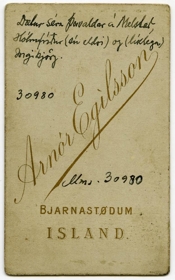 Dætur séra Þorvaldar á
Hólmfríður (én eldri) og (líklega)
Ingibjörg.
30980
Arnór Egilsson
Mms. 30980
BJARNASTØÐUM
ISLAND.